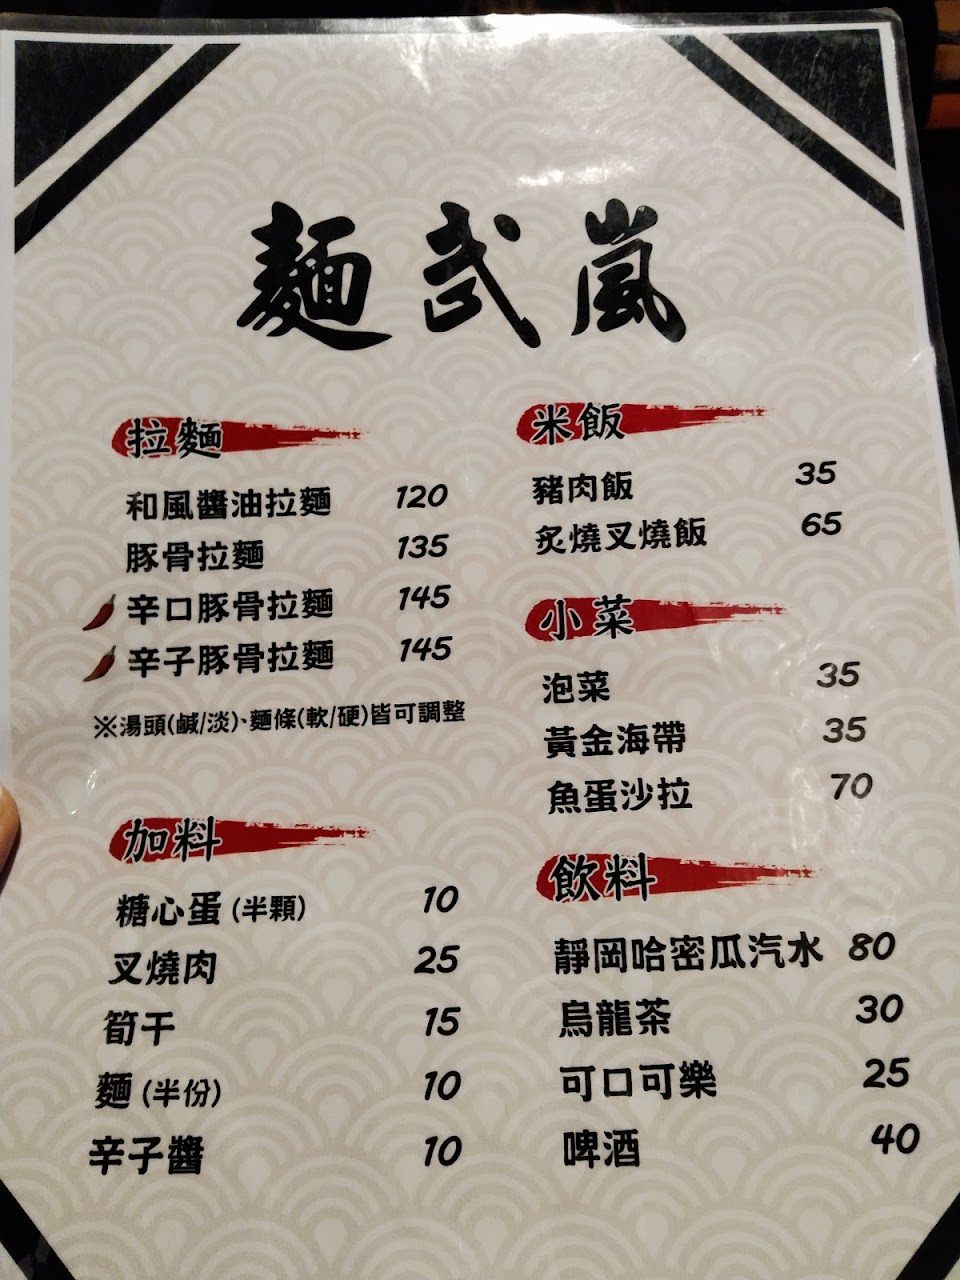 麵武嵐
拉麵
和風醬油拉麵 120
豚骨拉麵 135
辛口豚骨拉麵 145
辛子豚骨拉麵 145
※湯頭(鹹/淡)、麵條(軟/硬)皆可調整
加料
糖心蛋(半顆) 10
叉燒肉 25
筍干 15
麵(半份) 10
辛子醬 10
米飯
豬肉飯 35
炙燒叉燒飯 65
小菜
泡菜 35
黃金海帶 35
魚蛋沙拉 70
飲料
靜岡哈密瓜汽水 80
烏龍茶 30
可口可樂 25
啤酒 40